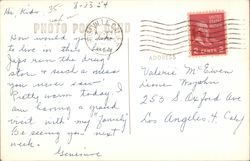 Hi, Kids 35- 8-23-54
PHOTO POST CARD
How would you like
to live in this? Lucy
Jeps run the drug
store & such a mess
you never saw.
Pretty warm today. I
am having a grand
visit with my "family"
Be seeing you next
week.
Genevieve
2 CENTS 2
ADDRESS
Valerie McEwen
253 S. Oxford Ave
Los Angeles, 4 Calif